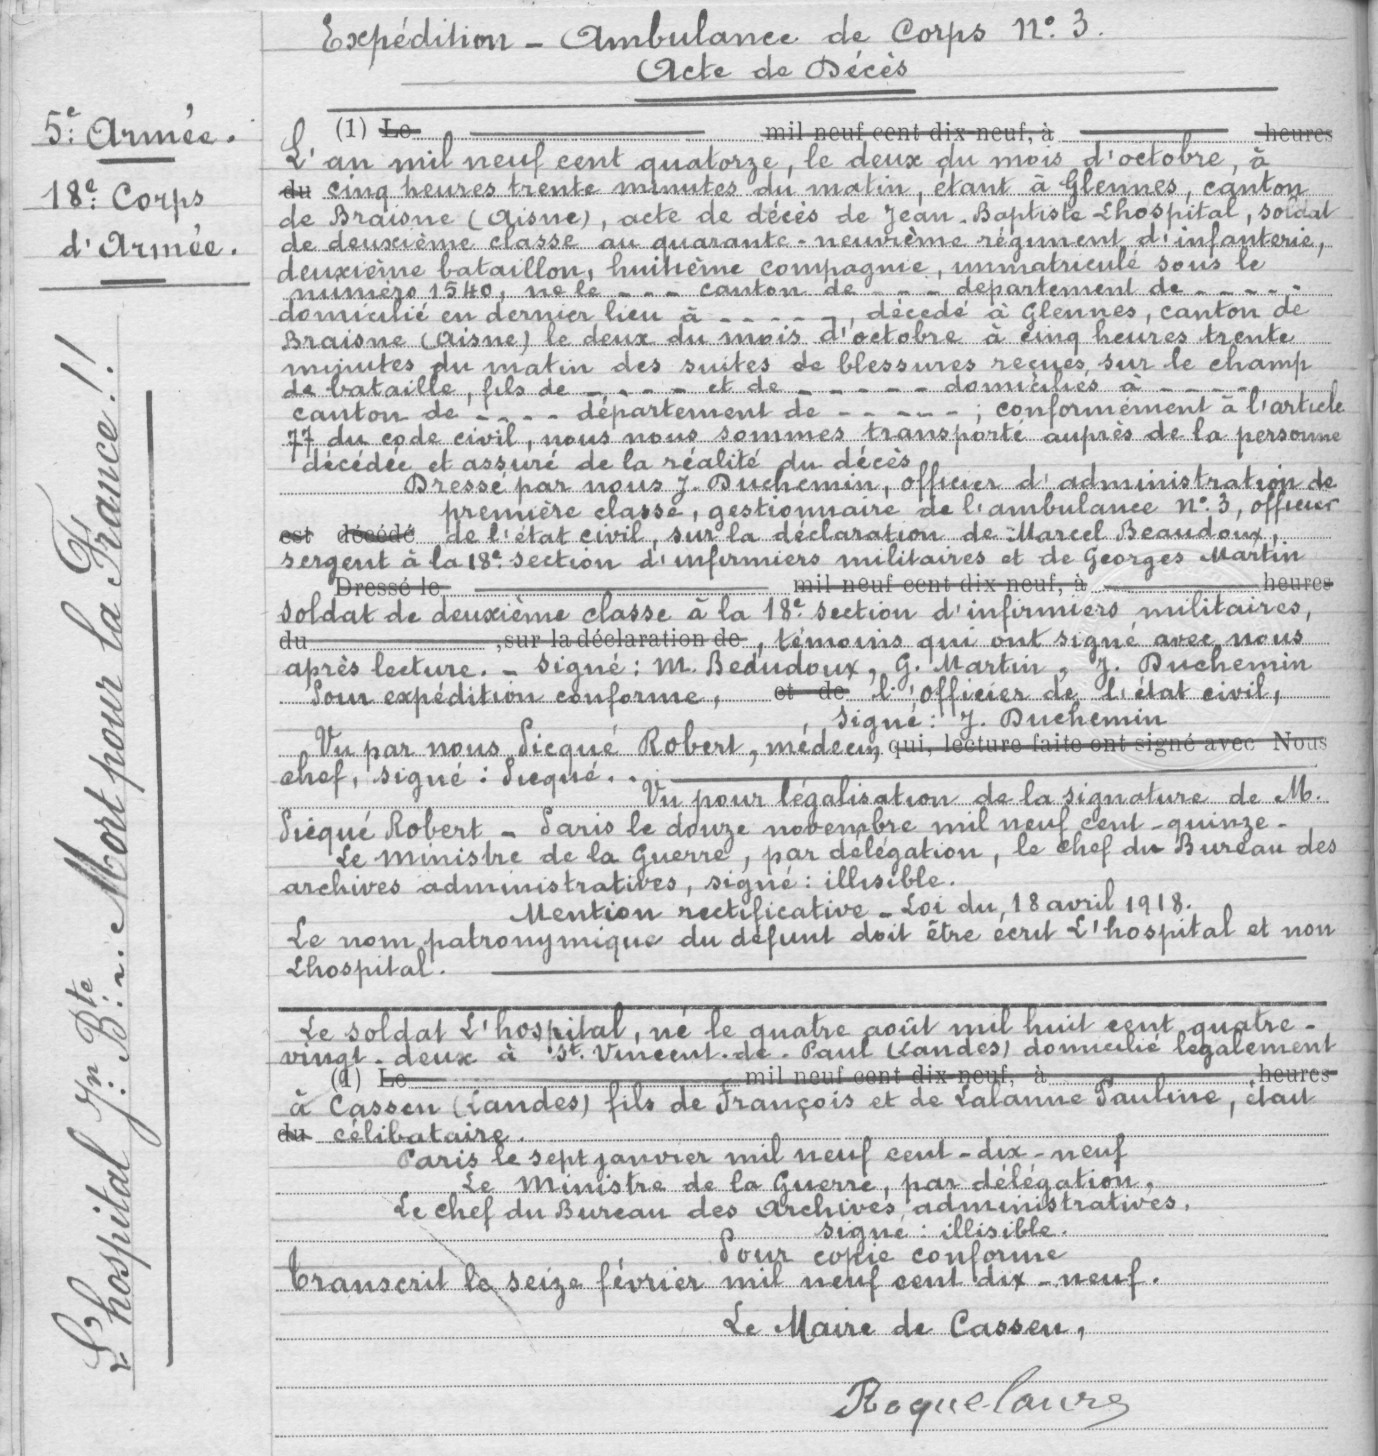 Expédition - Ambulance de Corps N°. 3.
Acte de Décès
5e. Armée.
18e. Corps
d'Armée.
L'hospital Jn. Bte. ~ Mort pour la France!!
(1) Le mil neuf cent dix-neuf, à heures
L'an mil neuf cent quatorze, le deux du mois d'octobre, à
du cinq heures trente minutes du matin, étant à Glennes, canton
de Braisne (Aisne), acte de décès de Jean-Baptiste Lhospital, soldat
de deuxième classe au quarante-neuvième régiment d'infanterie,
deuxième bataillon, huitième compagnie, immatriculé sous le
numéro 1540, né le - - - canton de - - - département de - - - - -
domicilié en dernier lieu à - - - - -, décédé à Glennes, canton de
Braisne (Aisne) le deux du mois d'octobre à cinq heures trente
minutes du matin des suites de blessures reçues sur le champ
de bataille, fils de - - - - et de - - - - - domiciliés à - - - -
canton de - - - - département de - - - - - ; conformément à l'article
77 du code civil, nous nous sommes transporté auprès de la personne
décédée et assuré de la réalité du décès
Dressé par nous J. Duchemin, officier d'administration de
première classe, gestionnaire de l'ambulance N°. 3, officier
est décédé de l'état civil, sur la déclaration de Marcel Beaudoux,
sergent à la 18e. section d'infirmiers militaires et de Georges Martin
Dressé le mil neuf cent dix-neuf, à heures
soldat de deuxième classe à la 18e. section d'infirmiers militaires,
du , sur la déclaration de , témoins qui ont signé avec nous
après lecture. - Signé: M. Beaudoux, G. Martin, J. Duchemin
Pour expédition conforme, et de l'officier de l'état civil,
signé: J. Duchemin
Vu par nous Picqué Robert, médecin qui, lecture faite ont signé avec Nous
chef, signé: Picqué. .
Vu pour légalisation de la signature de M.
Picqué Robert - Paris le douze novembre mil neuf cent-quinze-
Le ministre de la Guerre, par délégation, le chef du Bureau des
archives administratives, signé: illisible.
Mention rectificative - Loi du 18 avril 1918.
Le nom patronymique du défunt doit être écrit L'hospital et non
Lhospital.
Le soldat L'hospital, né le quatre août mil huit cent quatre-
vingt-deux à St. Vincent-de-Paul (Landes) domicilié légalement
(1) Le mil neuf cent dix-neuf, à heures
à Cassen (Landes) fils de François et de Lalanne Pauline, était
du célibataire.
Paris le sept janvier mil neuf cent-dix-neuf
Le Ministre de la Guerre, par délégation,
Le chef du Bureau des Archives administratives,
signé: illisible.
Pour copie conforme
Transcrit le seize février mil neuf cent dix-neuf.
Le Maire de Cassen,
Roquelaure